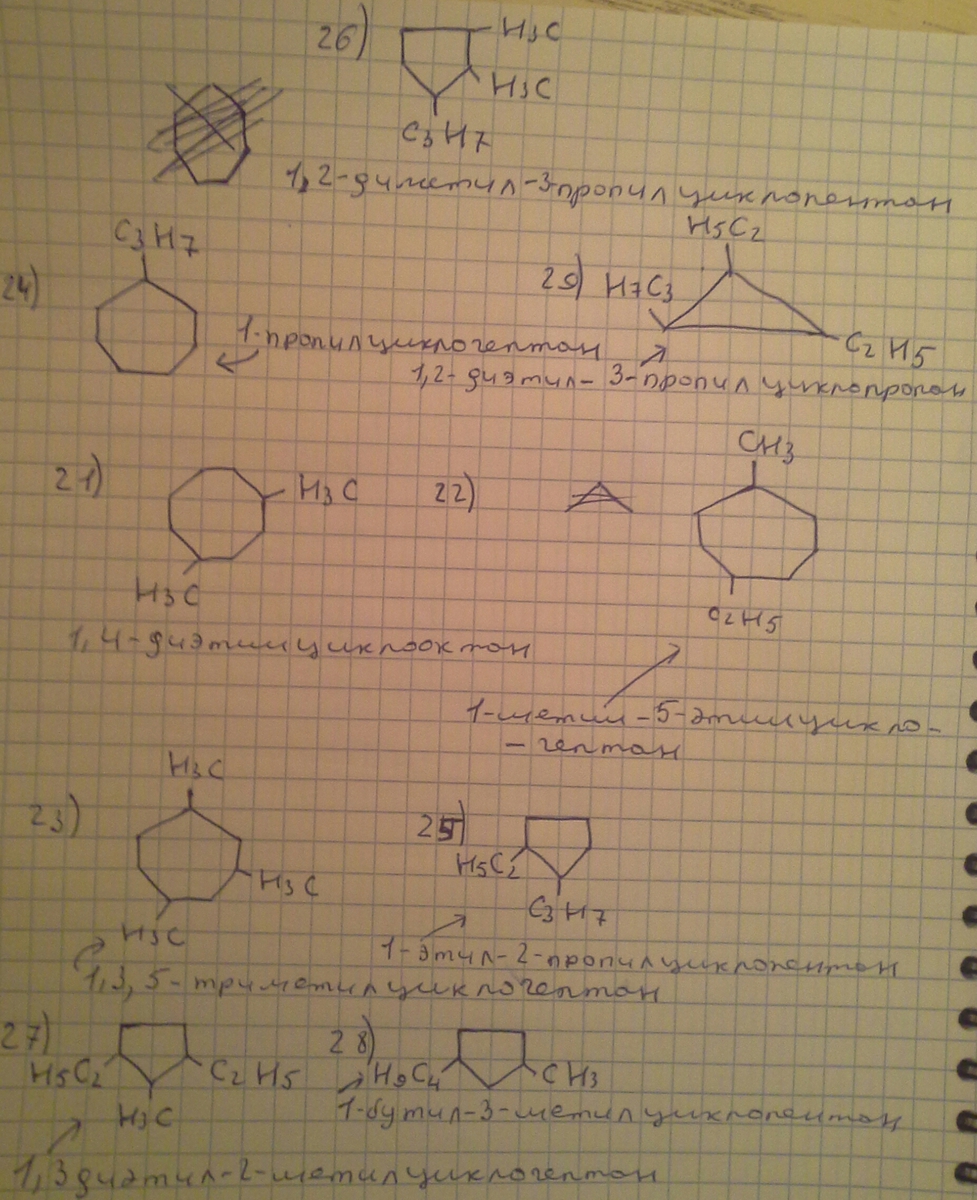 26)
H3C
H3C
C3H7
1,2-диметил-3пропилциклопентон
C3H7
24)
1-пропилциклогептон
H5C2
29) H7C3
C2H5
1,2-диэтил-3-пропилциклопропон
21)
H3C
H3C
1,4-диэтилциклооктон
22)
CH3
C2H5
1-метил-5-этилцикло-
-гептон
H3C
23)
H3C
H3C
1,3,5-триметилциклогептон
25)
H5C2
C3H7
1-этил-2-пропилциклопентон
27)
H5C2
C2H5
H3C
1,3диэтил-2-метилциклогептон
28)
H9C4
CH3
1-бутил-3-метилциклопентон